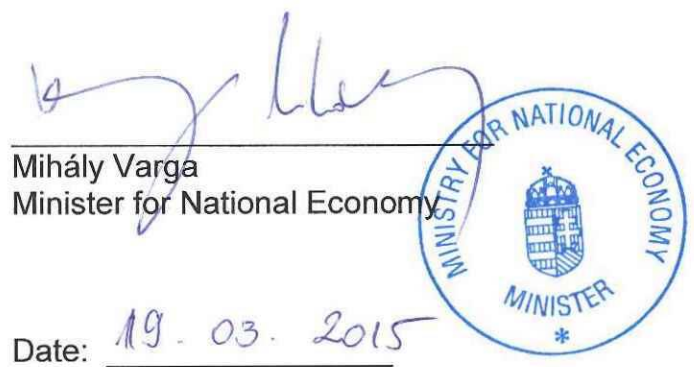 Mihály Varga
Minister for National Economy
MINISTRY FOR NATIONAL ECONOMY
MINISTER
*
Date: 19. 03. 2015